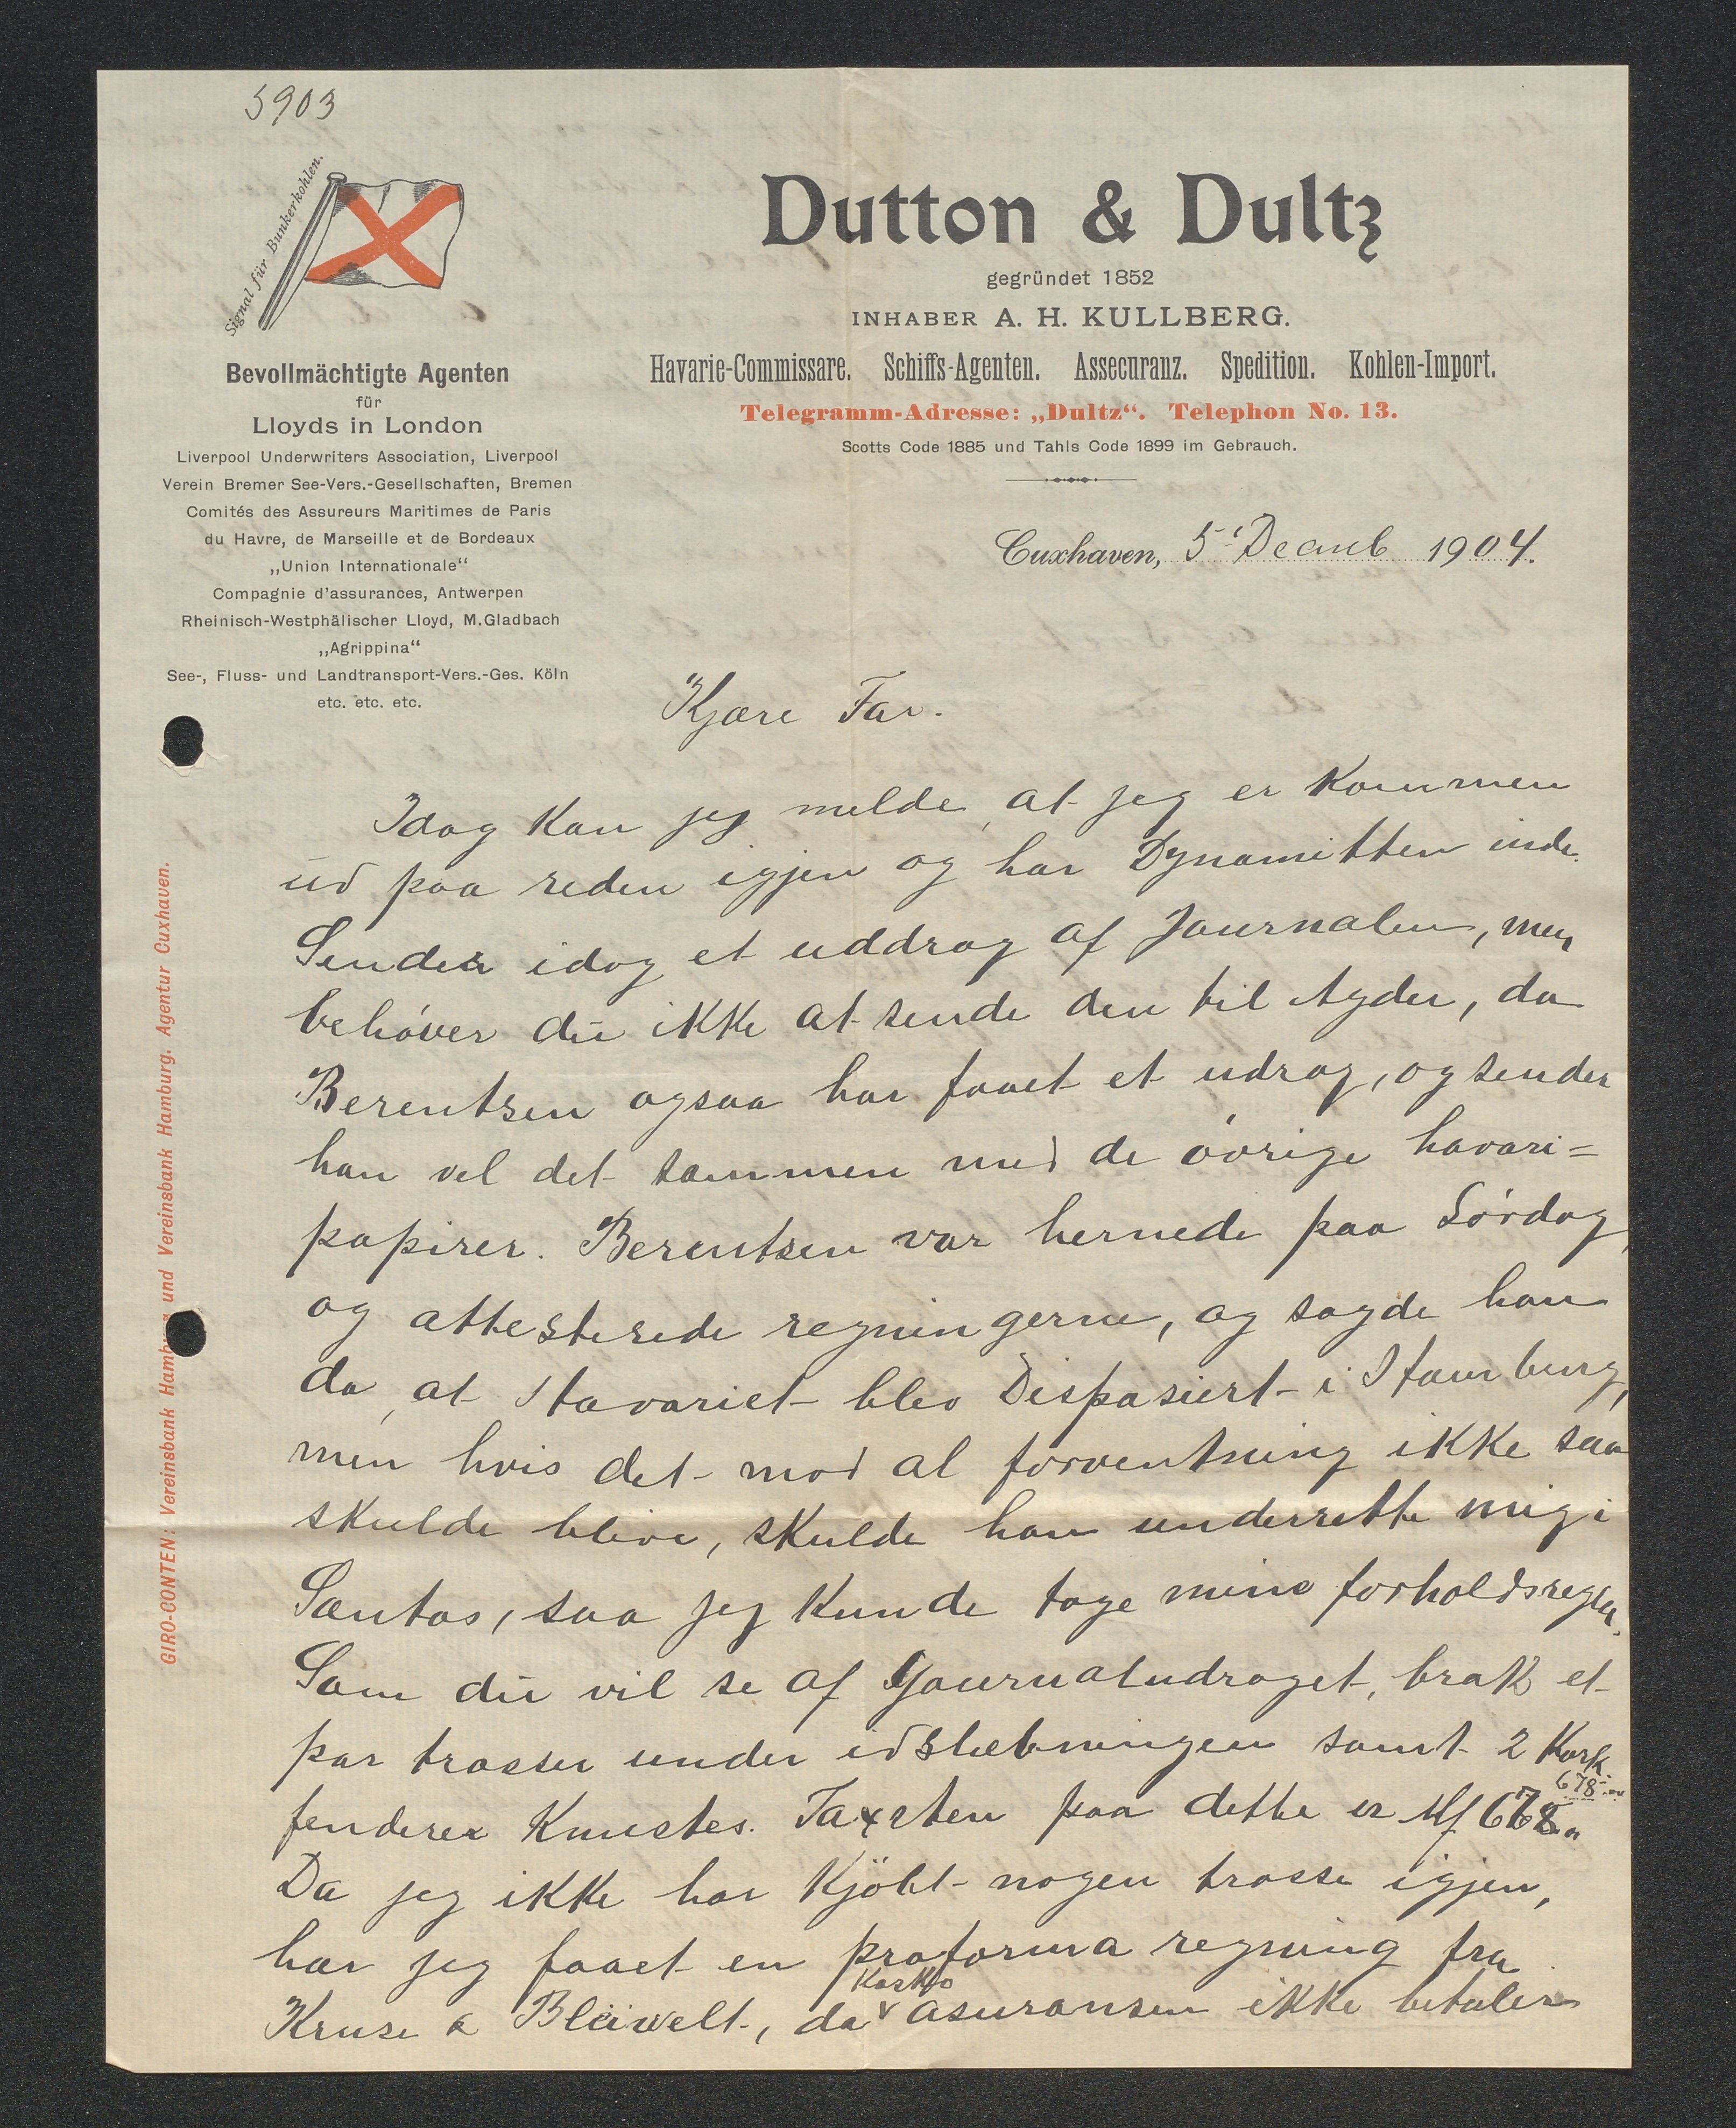 5903
Signal für Bunkerkohlen.
Dutton & Dultz
gegründet 1852
INHABER A. H. KULLBERG.
Havarie-Commissare. Schiffs-Agenten. Assecuranz. Spedition. Kohlen-Import.
Telegramm-Adresse: „Dultz“. Telephon No. 13.
Scotts Code 1885 und Tahls Code 1899 im Gebrauch.
Bevollmächtigte Agenten
für
Lloyds in London
Liverpool Underwriters Association, Liverpool
Verein Bremer See-Vers.-Gesellschaften, Bremen
Comités des Assureurs Maritimes de Paris
du Havre, de Marseille et de Bordeaux
„Union Internationale“
Compagnie d'assurances, Antwerpen
Rheinisch-Westphälischer Lloyd, M.Gladbach
„Agrippina“
See-, Fluss- und Landtransport-Vers.-Ges. Köln
etc. etc. etc.
GIRO-CONTEN: Vereinsbank Hamburg und Vereinsbank Hamburg. Agentur Cuxhaven.
Cuxhaven, 5' Decmb 1904.
Kjære Far.
Idag kan jeg melde, at jeg er kommen
ud paa reden igjen og har Dynamitten inde.
Sender idag et uddrag af Journalen, men
behøver du ikke at sende den til Agder, da
Berentsen ogsaa har faaet et udrag, og sender
han vel det sammen med de øvrige havari=
papirer. Berentsen var hernede paa Lørdag,
og attesterede regningerne, og sagde han
da, at Havariet blev Dispasiert i Hamburg,
men hvis det mod al forventning ikke saa
skulde blive, skulde han underrette mig i
Santos, saa jeg kunde tage mine forholdsregler.
Som du vil se af Journaludraget, brak et
par trosser under idslæbningen samt 2 Kork-
fenderer knustes. Taxsten paa dette er M 678.
678.-
Da jeg ikke har kjøbt nogen trosse igjen,
har jeg faaet en proforma regning fra
Kruse & Bleiwelt, da Kasko asuransen ikke betaler